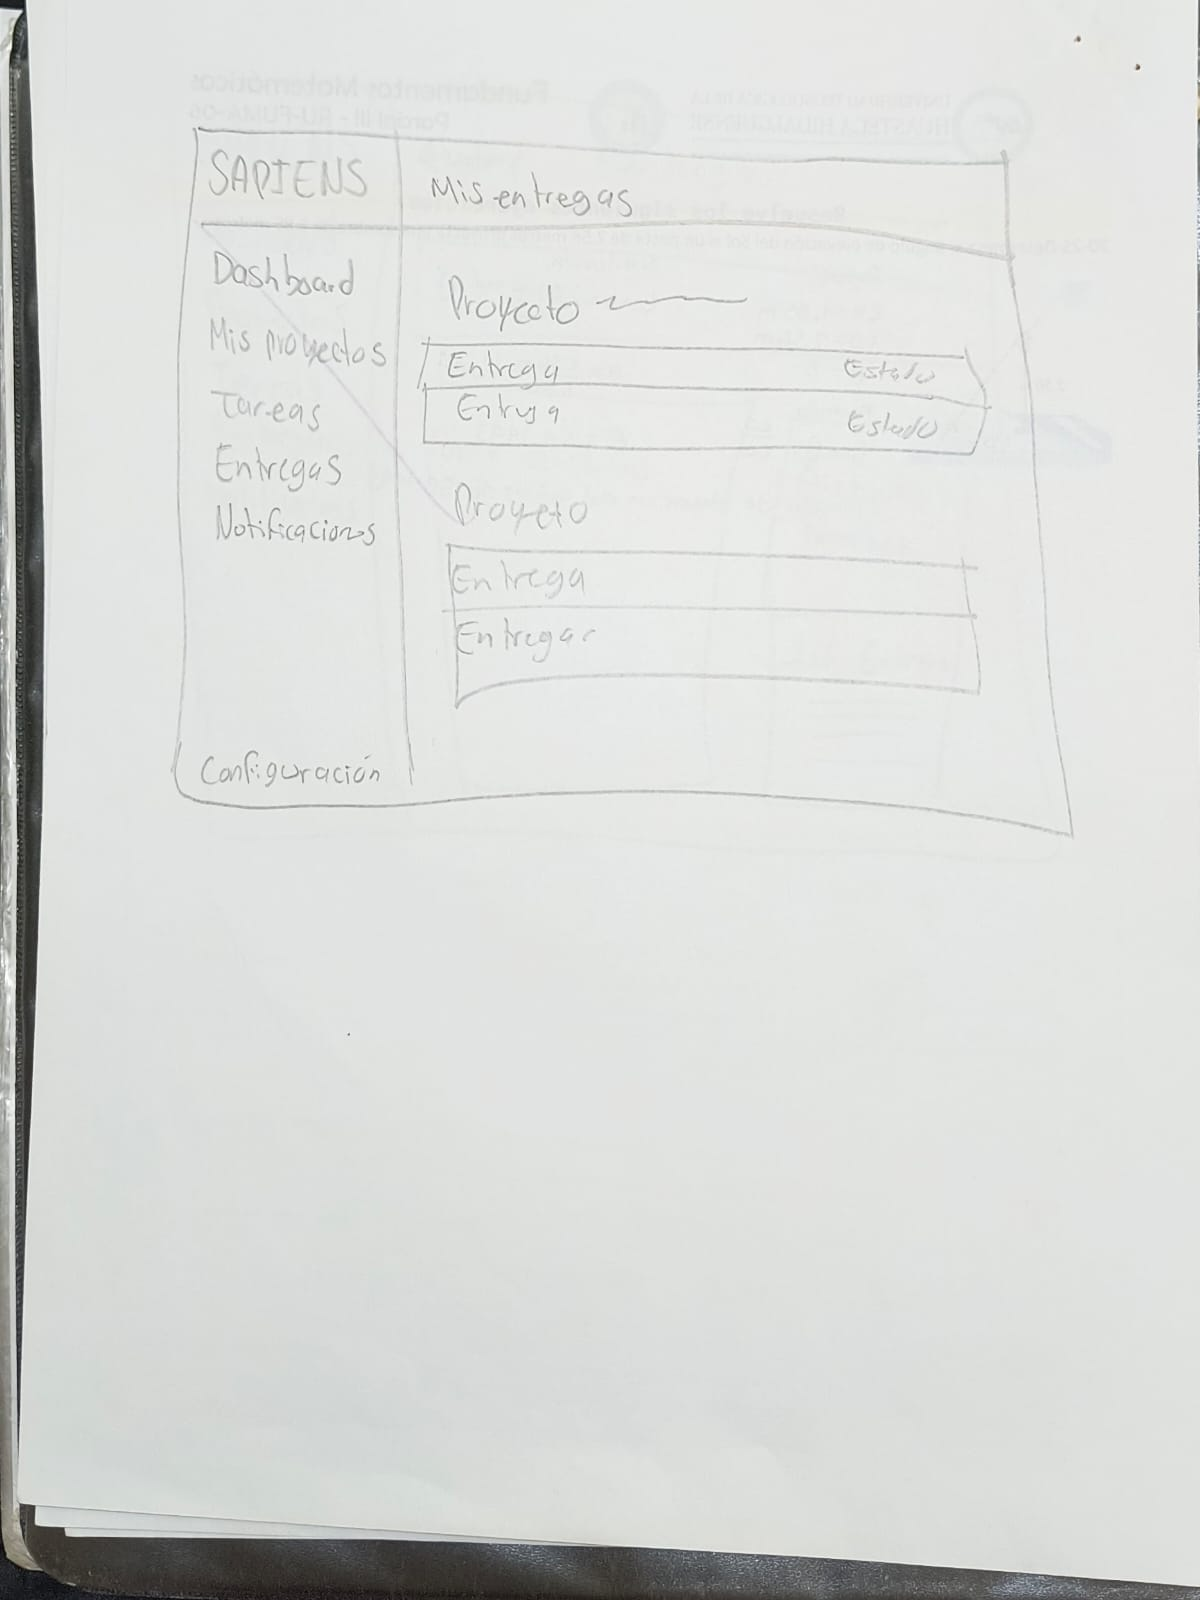 SAPIENS
Mis entregas
Dashboard
Mis proyectos
Tareas
Entregas
Notificaciones
Configuración
Proyecto
Entrega Estado
Entrega Estado
Proyeto
Entrega
Entregar